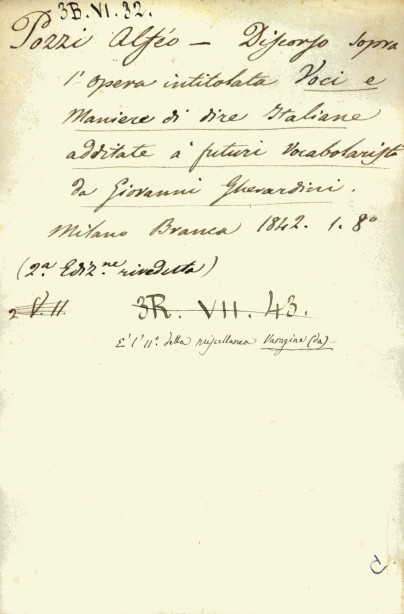 3B. VI. 32.
Pozzi Alféo — Discorso sopra
l'opera intitolata Voci e
Maniere di dire Italiane
additate a' futuri Vocabolaristi
da Giovanni Gherardini.
Milano Branca 1842. 1. 8°
(2ª Ediz.ne riveduta)
2 V. 11.
3R. VII. 43.
E' l'11° della miscellanea Varagine (da)